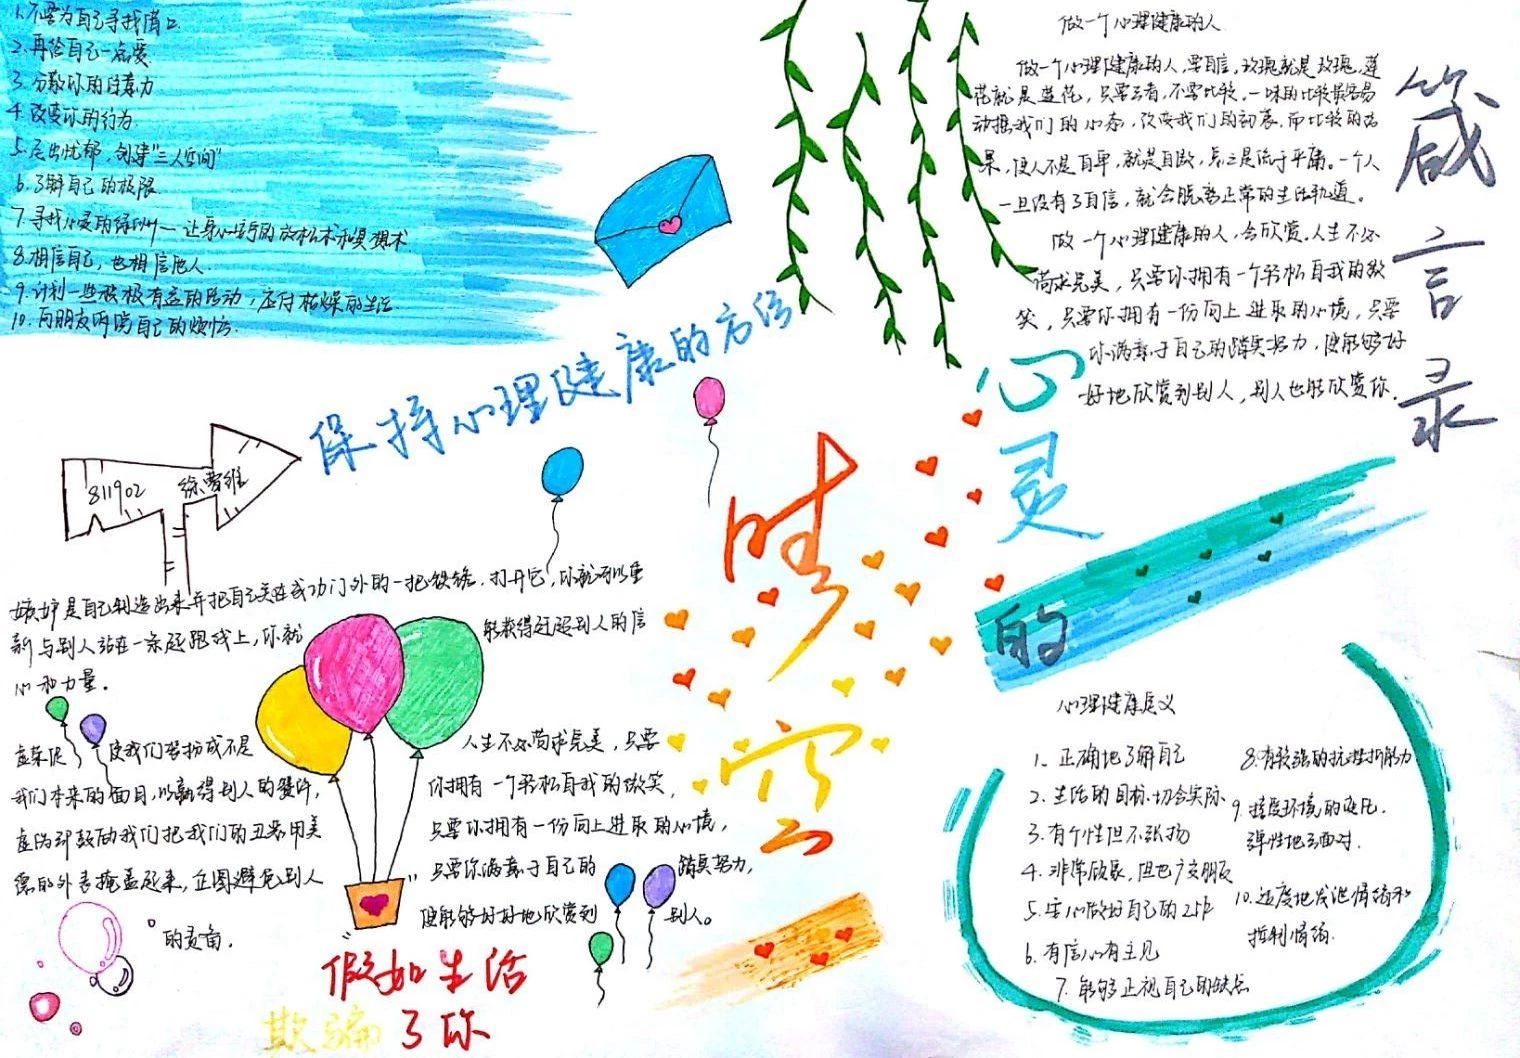 1.不要为自己寻找借口.
2.再给自己一点爱
3.分散你的注意力
4.改变你的行为
5.走出忧郁，创建"三人空间"
6.了解自己的极限
7.寻找心灵的绿洲— 让身心
放松术和冥想术
8.相信自己，也相信他人.
9.计划一些积极有益的活动，应付枯燥的生活
10.向朋友倾诉自己的烦恼
保持心理健康的方法
811902
嫉妒是自己制造出来并把自己关在成功门外的一把铁锁，打开它，你就可以重
新与别人站在一条起跑线上，你就能获得赶超别人的信
心和力量。
虚荣促使我们装扮成不是
我们本来的面目，以赢得别人的赞许，
虚伪却鼓动我们把我们的丑恶用美
德的外表掩盖起来，企图避免别人
的责备.
人生不必苛求完美，只要
你拥有一个轻松自我的微笑，
只要你拥有一份向上进取的心境，
只要你满意于自己的踏实努力，
便能够好好地欣赏到别人。
假如生活
欺骗了你
晴空
心灵
的
箴言录
做一个心理健康的人
做一个心理健康的人，要自信，玫瑰就是玫瑰，莲
花就是莲花，只要去看，不要比较，一味的比较最容易
动摇我们的心态，改变我们的初衷，而比较的结
果，使人不是自卑，就是自傲，总之是流于平庸。一个人
一旦没有了自信，就会脱离正常的生活轨道。
做一个心理健康的人，会欣赏.人生不必
苛求完美，只要你拥有一个轻松自我的微
笑，只要你拥有一份向上进取的心境，只要
你满意于自己的踏实努力，便能够好
好地欣赏到别人，别人也能欣赏你.
心理健康意义
1.正确地了解自己
2.生活的目标切合实际
3.有个性但不张扬
4.非常顾家，但也广交朋友
5.安心做好自己的工作
6.有信心有主见
7.能够正视自己的缺点
8.有较强的抗挫折能力
9.接受环境的变化.
弹性地去面对.
10.适度地发泄情绪和
控制情绪.